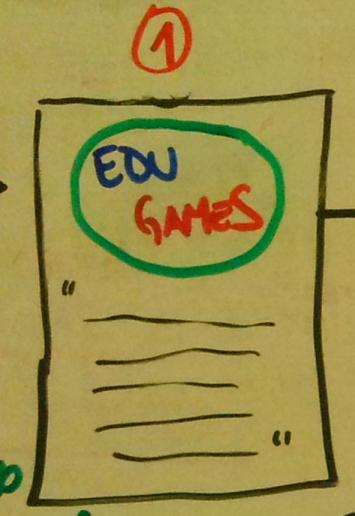 1
EDU
GAMES
"
"